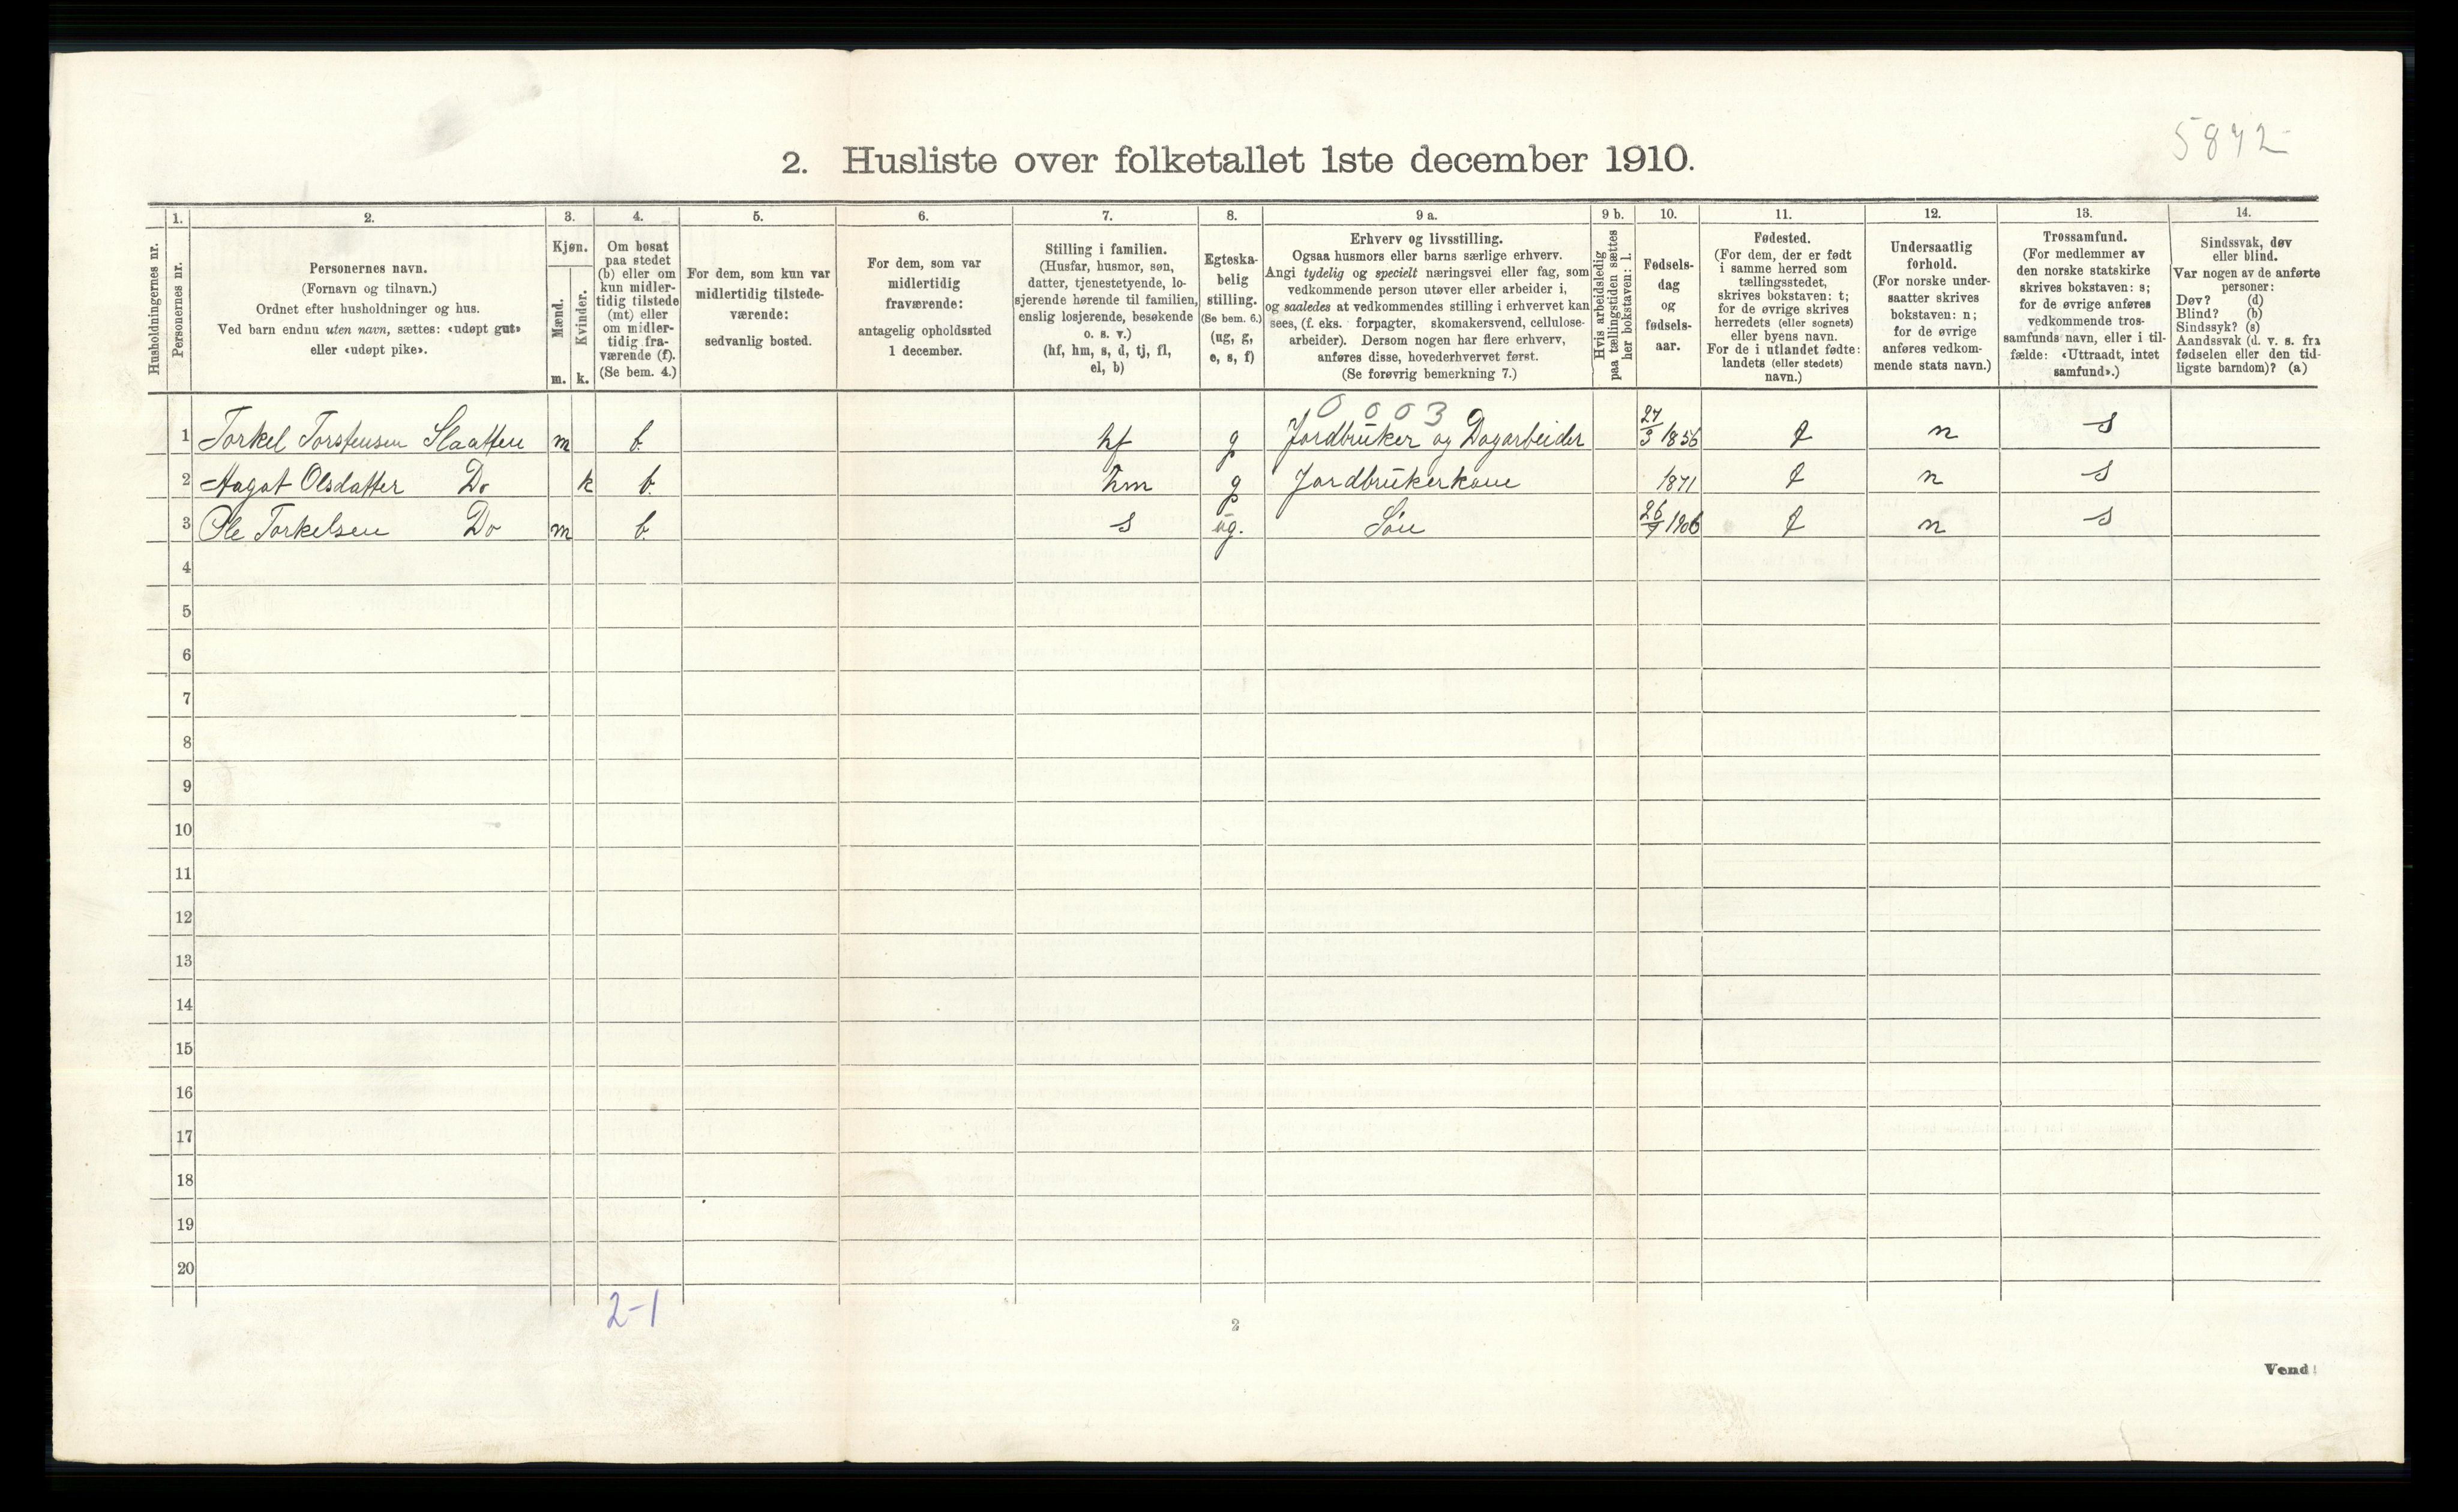 5872
2. Husliste over folketallet 1ste december 1910.
1. 2. 3. 4. 5. 6. 7. 8. 9 a. 9 b. 10. 11. 12. 13. 14.
Husholdningernes nr.
Personernes nr.
Personernes navn.
(Fornavn og tilnavn.)
Ordnet efter husholdninger og hus.
Ved barn endnu uten navn, sættes: «udøpt gut»
eller «udøpt pike».
Kjøn.
Mænd.
Kvinder.
m. k.
Om bosat
paa stedet
(b) eller om
kun midler-
tidig tilstede
(mt) eller
om midler-
tidig fra-
værende (f).
(Se bem. 4.)
For dem, som kun var
midlertidig tilstede-
værende:
sedvanlig bosted.
For dem, som var
midlertidig
fraværende:
antagelig opholdssted
1 december.
Stilling i familien.
(Husfar, husmor, søn,
datter, tjenestetyende, lo-
sjerende hørende til familien,
enslig losjerende, besøkende
o. s. v.)
(hf, hm, s, d, tj, fl,
el, b)
Egteska-
belig
stilling.
(Se bem. 6.)
(ug, g,
e, s, f)
Erhverv og livsstilling.
Ogsaa husmors eller barns særlige erhverv.
Angi tydelig og specielt næringsvei eller fag, som
vedkommende person utøver eller arbeider i,
og saaledes at vedkommendes stilling i erhvervet kan
sees, (f. eks. forpagter, skomakersvend, cellulose-
arbeider). Dersom nogen har flere erhverv,
anføres disse, hovederhvervet først.
(Se forøvrig bemerkning 7.)
Hvis arbeidsledig
paa tællingstiden sættes
her bokstaven: l.
Fødsels-
dag
og
fødsels-
aar.
Fødested.
(For dem, der er født
i samme herred som
tællingsstedet,
skrives bokstaven: t;
for de øvrige skrives
herredets (eller sognets)
eller byens navn.
For de i utlandet fødte:
landets (eller stedets)
navn.)
Undersaatlig
forhold.
(For norske under-
saatter skrives
bokstaven: n;
for de øvrige
anføres vedkom-
mende stats navn.)
Trossamfund.
(For medlemmer av
den norske statskirke
skrives bokstaven: s;
for de øvrige anføres
vedkommende tros-
samfunds navn, eller i til-
fælde: «Uttraadt, intet
samfund».)
Sindssvak, døv
eller blind.
Var nogen av de anførte
personer:
Døv? (d)
Blind? (b)
Sindssyk? (s)
Aandssvak (d. v. s. fra
fødselen eller den tid-
ligste barndom)? (a)
0 0 0 3
1 Torkel Torstensen Slaatten m b. hf g Jordbruker og Dagarbeider 27/3 1856 t n s
2 Aagot Olsdatter Do k b. hm g Jordbrukerkone 1871 t n s
3 Ole Torkelsen Do m b. s ug. Søn 26/7 1906 t n s
4
5
6
7
8
9
10
11
12
13
14
15
16
17
18
19
20
2-1
2
Vend!